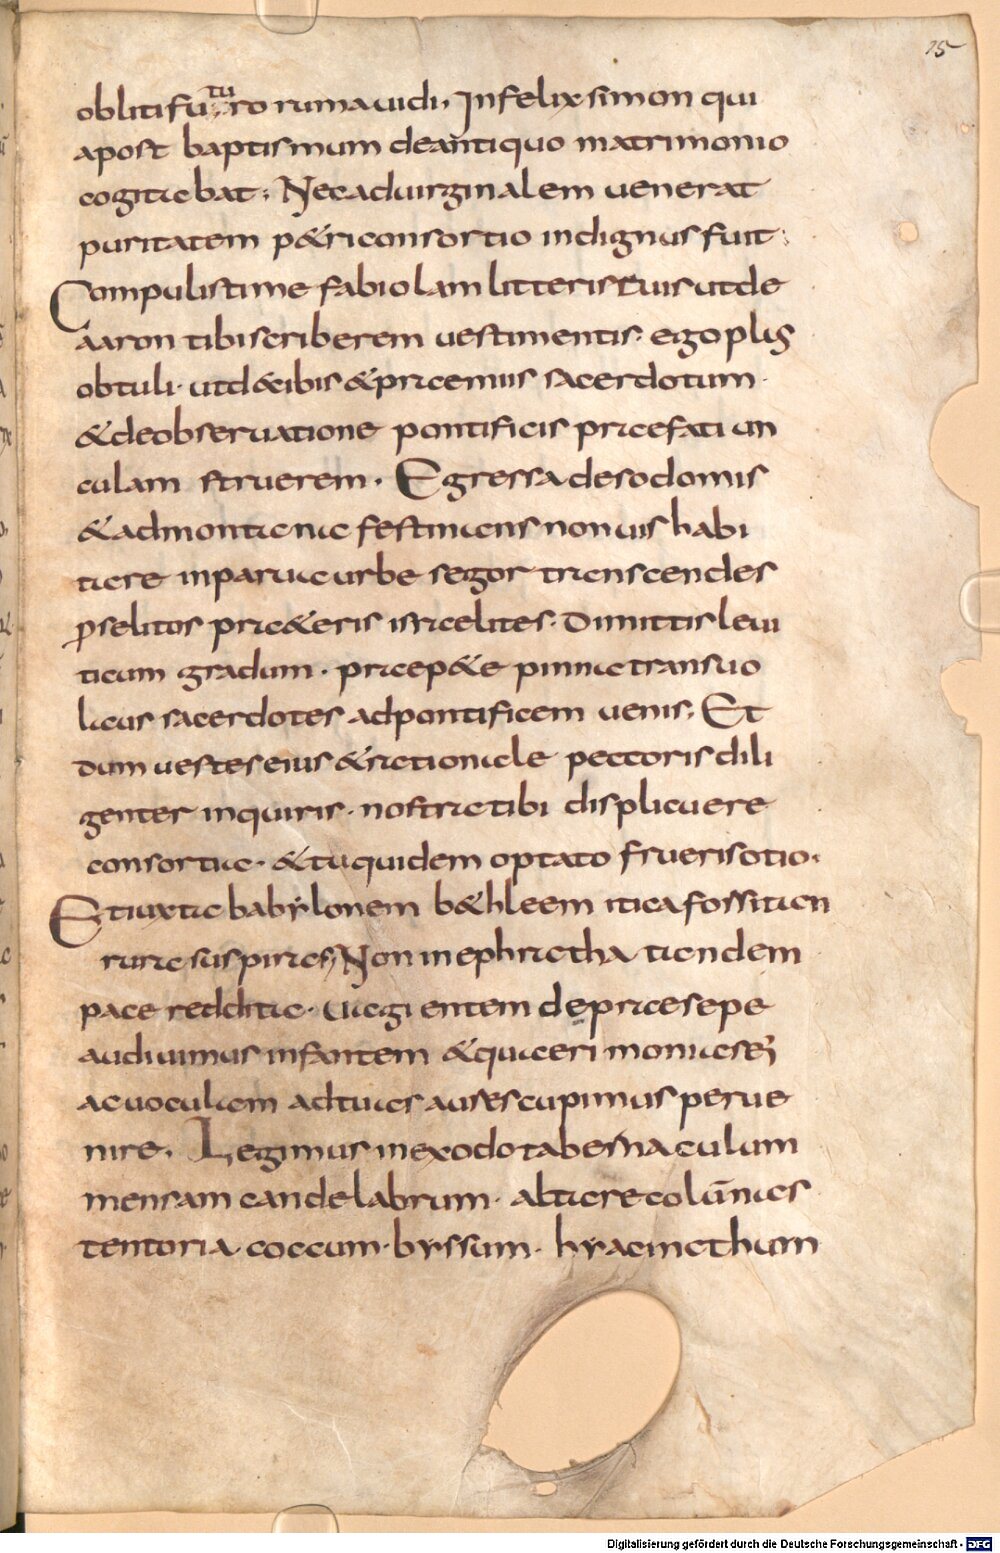 15
obliti futuro rum auidi, Infelix simon qui
apost baptismum deantiquo matrimonio
cogitabat; Nec aduirginalem uenerat
puritatem p&ri consortio indignus fuit;
Compulistime fabiolam litteris tuis ut de
aaron tibi scriberem uestimentis. ego plus
obtuli. ut d&cibis & praemiis sacerdotum.
& deobseruatione pontificis praefatiun
culam struerem. Egressa desodomis
& admontana festinans non uis habi
tare inparua urbe segor transcendes
p̱selitos pra&eris israelites. Dimittis leui
ticum gradum. praep&e pinna transuo
laus sacerdotes adpontificem uenis; Et
dum uestes eius & rationale pectoris dili
genter inquiris. nostra tibi displicuere
consortia. & tu quidem optato frueris otio.
Et iuxta babylonem b&hleem itica fossitan
rura suspiras; Non in ephratha tandem
pace reddita. uagientem depraesepe
audiuimus infantem & quaeri moniasei
ac uoculam adtuas aures cupimus perue
nire. Legimus in exodo tabernaculum
mensam candelabrum. altare colūnas
tentoria coccum. byssum. hyacincthum
Digitalisierung gefördert durch die Deutsche Forschungsgemeinschaft - DFG